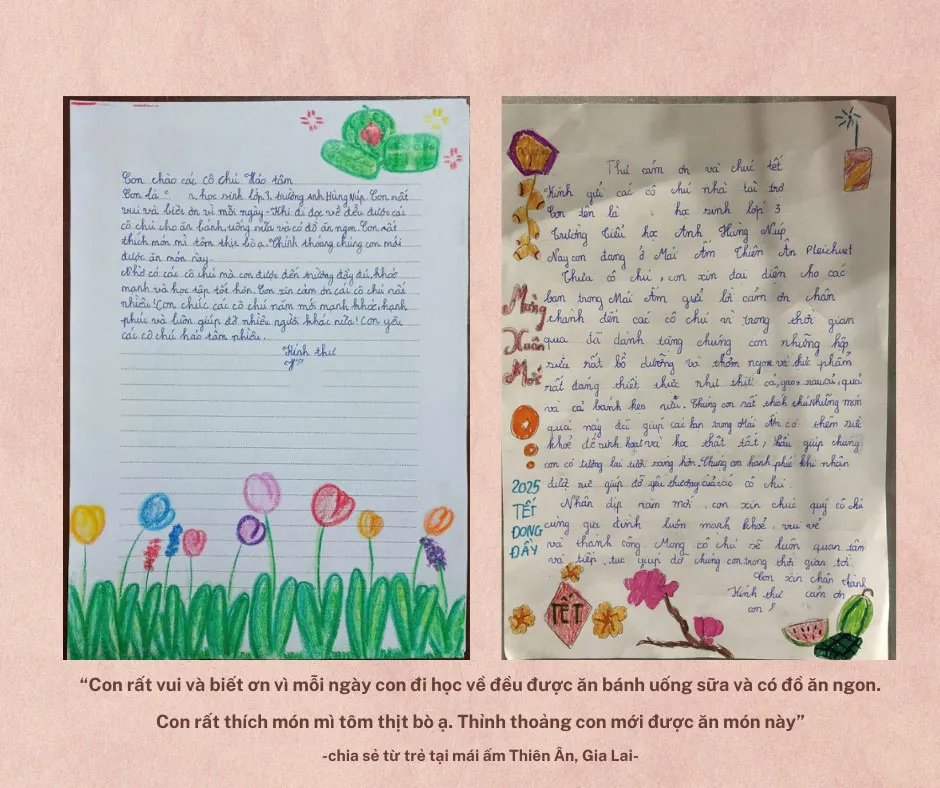 Con chào các cô chú Hảo tâm
Con là n, học sinh lớp 3, trường Anh Hùng Núp. Con rất
vui và biết ơn vì mỗi ngày. Khi đi học về đều được các
cô chú cho ăn bánh, uống sữa và có đồ ăn ngon. Con rất
thích món mì tôm thịt bò ạ. Thỉnh thoảng chúng con mới
được ăn món này.
Nhờ có các cô chú mà con được đến trường đầy đủ, khoẻ
mạnh và học tập tốt hơn. Con xin cảm ơn các cô chú rất
nhiều! Con chúc các cô chú năm mới mạnh khoẻ, hạnh
phúc và luôn giúp đỡ nhiều người khác nữa! Con yêu
các cô chú hảo tâm nhiều.
Kính thư
Thư cảm ơn và chúc tết
Kính gửi các cô chú nhà tài trợ
Con tên là học sinh lớp 3
Trường Tiểu học Anh Hùng Núp
Nay con đang ở Mái Ấm Thiên Ân Pleichuet
Thưa cô chú, con xin đại diện cho các
bạn trong Mái Ấm gửi lời cảm ơn chân
thành đến các cô chú vì trong thời gian
qua đã dành tặng chúng con những hộp
sữa rất bổ dưỡng và thơm ngon và thực phẩm
rất đáng thiết thực như thịt, cá, gạo, rau củ, quả
và cả bánh kẹo nữa. Chúng con rất thích chú những món
quà này đã giúp các bạn trong Mái Ấm có thêm sức
khoẻ để sinh hoạt và học thật tốt, hầu giúp chúng
con có tương lai tươi sáng hơn. Chúng con hạnh phúc khi nhận
được sự giúp đỡ yêu thương của các cô chú.
Nhân dịp năm mới, con xin chúc quý cô chú
cùng gia đình luôn mạnh khoẻ, vui vẻ
và thành công. Mong cô chú sẽ luôn quan tâm
và tiếp tục giúp đỡ chúng con trong thời gian tới.
Con xin chân thành
Kính thư cảm ơn
con
Mừng
Xuân
Mới
2025
TẾT
ĐONG
ĐẦY
TẾT
“Con rất vui và biết ơn vì mỗi ngày con đi học về đều được ăn bánh uống sữa và có đồ ăn ngon.
Con rất thích món mì tôm thịt bò ạ. Thỉnh thoảng con mới được ăn món này”
-chia sẻ từ trẻ tại mái ấm Thiên Ân, Gia Lai-